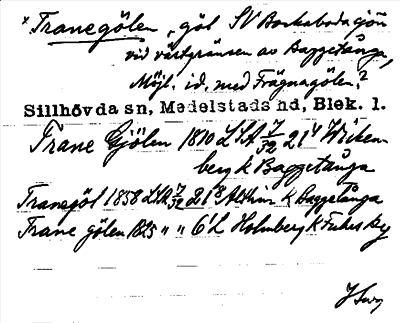 * Tranegölen, göl SV Backabodasjön
vid västgränsen av Baggetånga,
Möjl. id. med Frägnagölen?
Sillhövda sn, Medelstads hd, Blek. l.
Trane Gjölen 1810 LSA 7/32 21⁴ Wickenberg
k Baggetånga
Tranegöl 1858 LSA 7/32 21⁸ k Baggetånga
Trane gölen 1825 " " 6¹2 Holmberg k